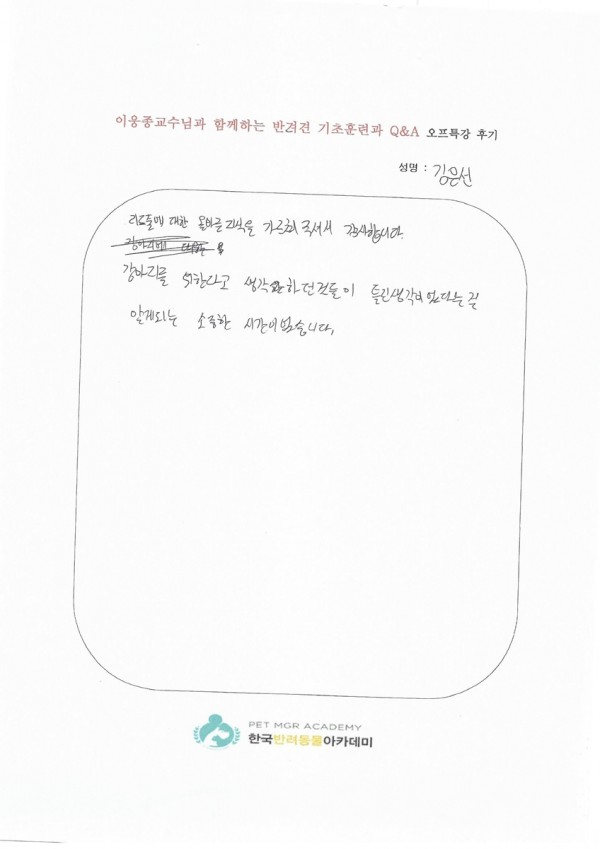 이웅종교수님과 함께하는 반려견 기초훈련과 Q&A 오프특강 후기
성명 : 김은선
대한 올바른 지식을 가르쳐 주셔서 감사합니다.
강아지를 위한다고 생각하던것들이 틀린생각이었다는걸
알게되는 소중한 시간이었습니다.
PET MGR ACADEMY
한국반려동물아카데미